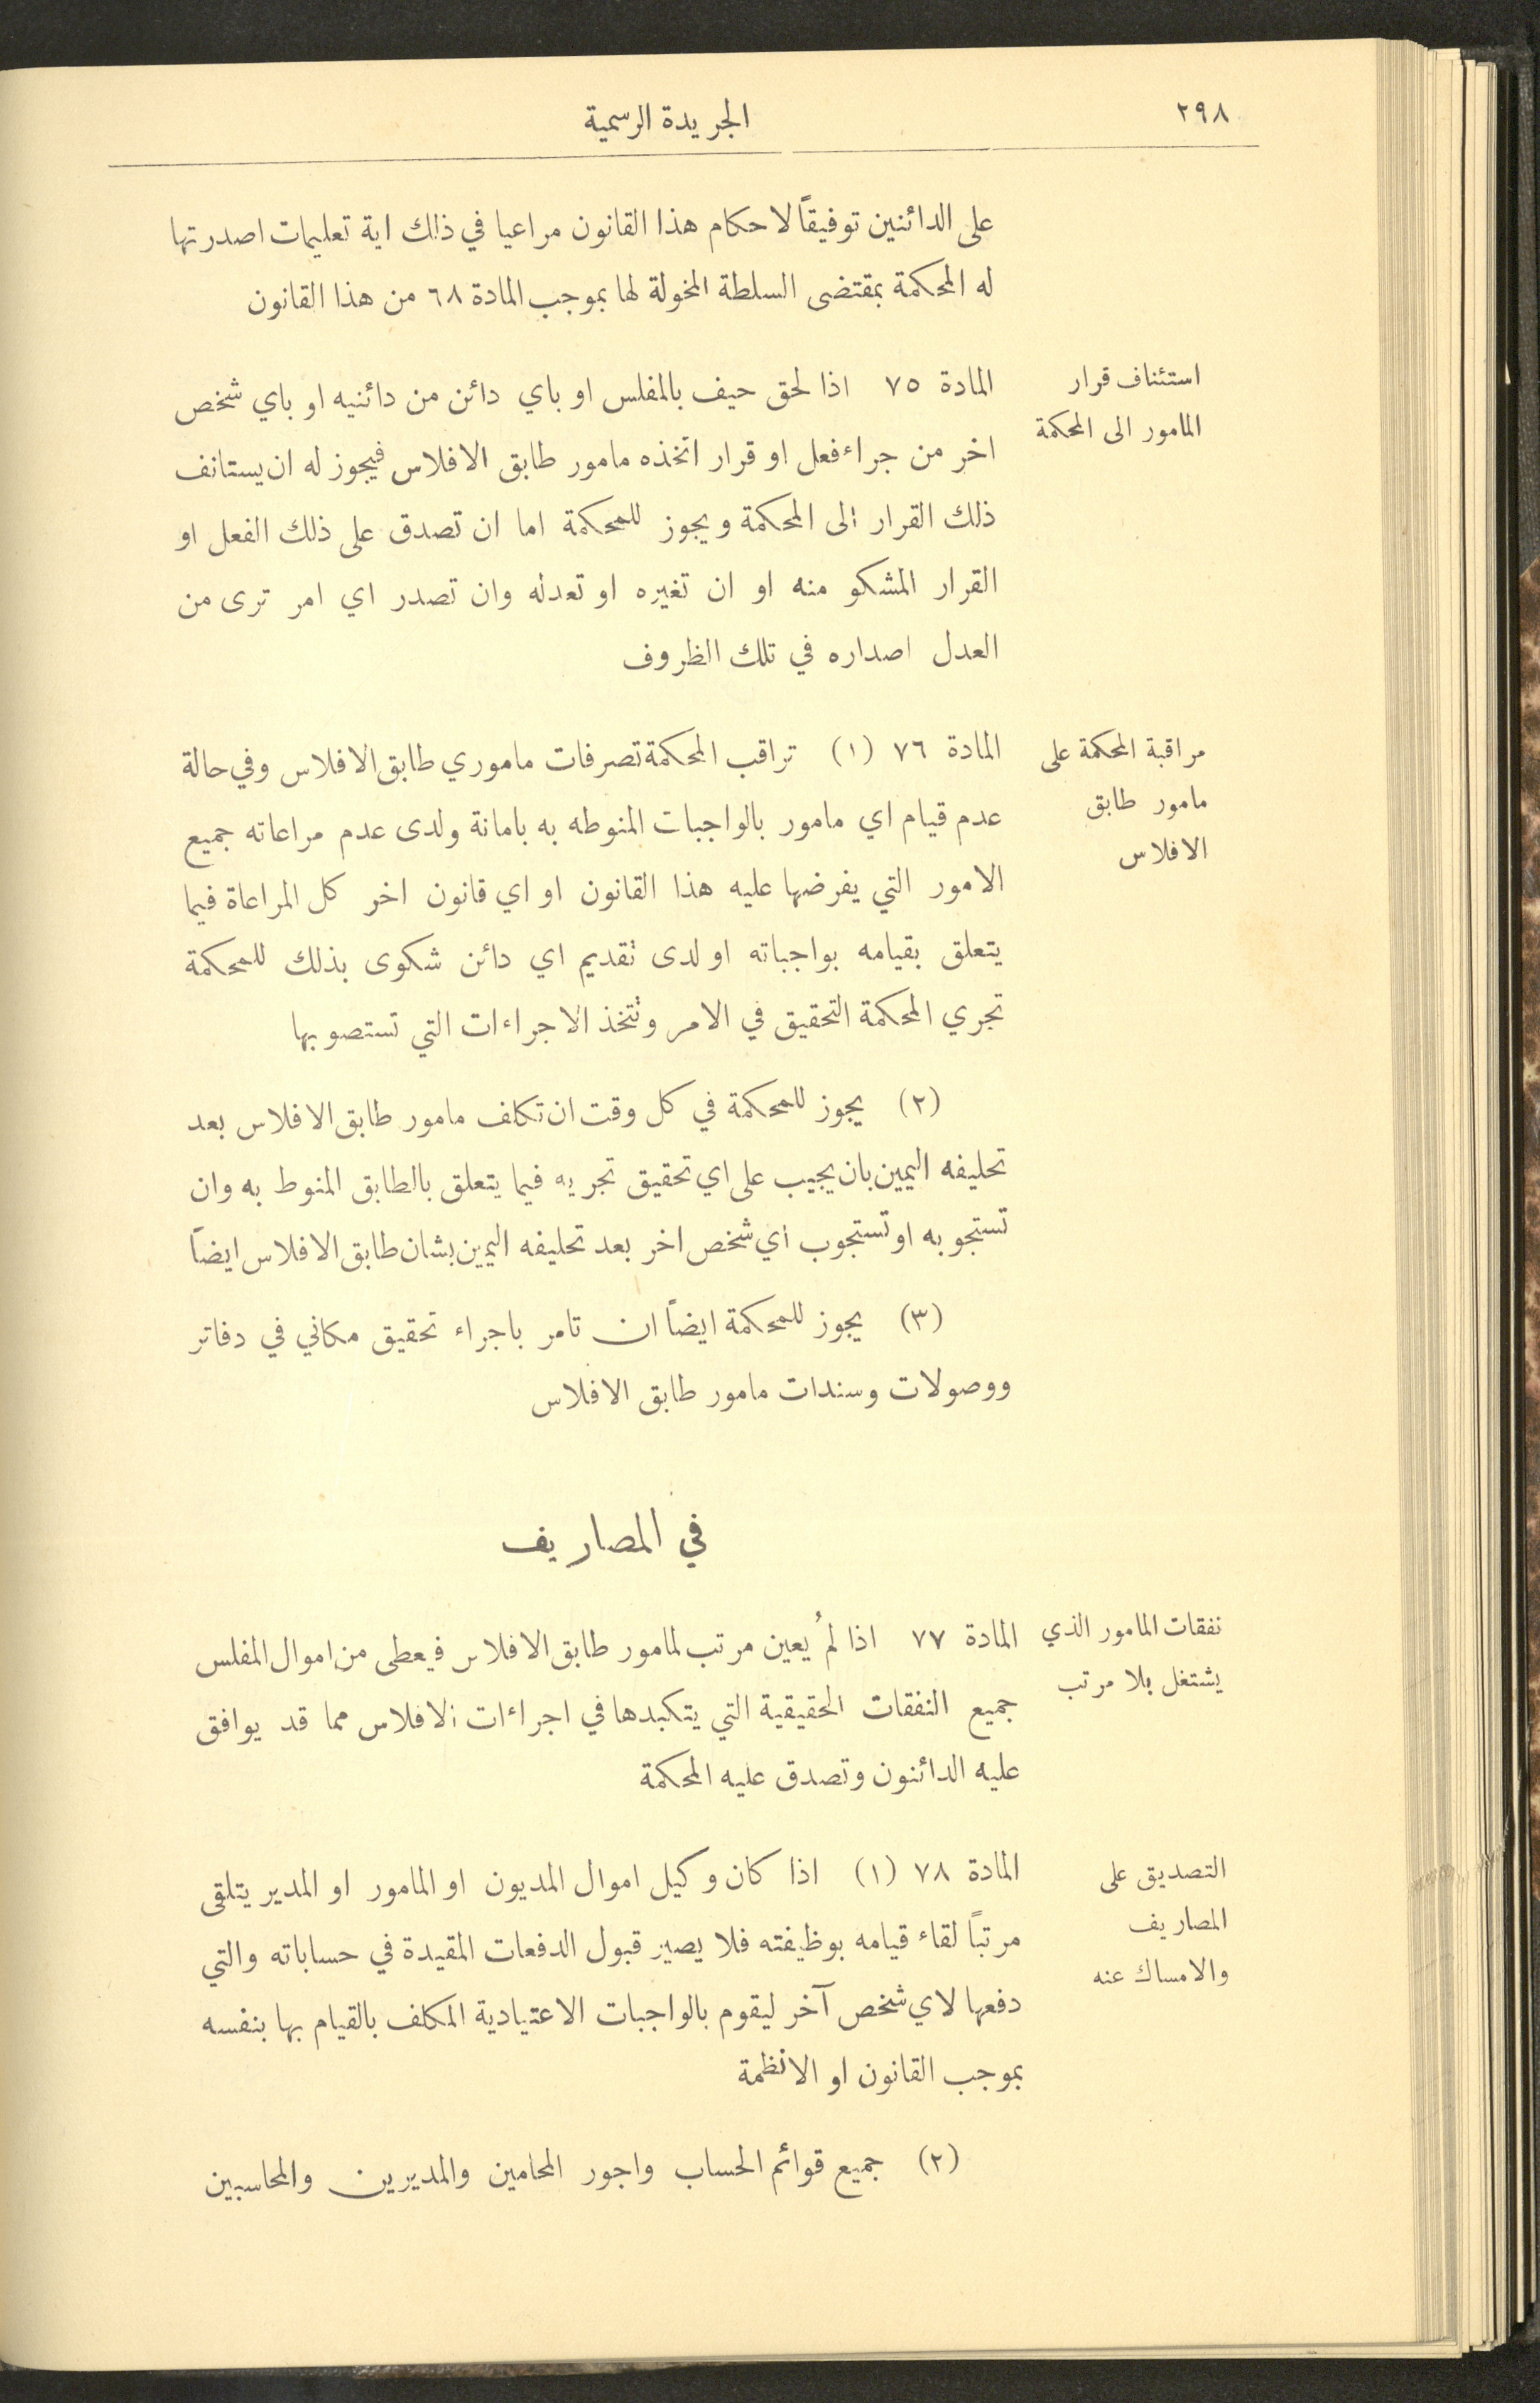 ٢٩٨
الجريدة الرسمية
على الدائنين توفيقاً لاحكام هذا القانون مراعيا في ذلك اية تعليمات اصدرتها
له المحكمة بمقتضى السلطة المخولة لها بموجب المادة ٦٨ من هذا القانون
استئناف قرار
المامور الى المحكمة
المادة ٧٥ اذا لحق حيف بالمفلس او باي دائن من دائنيه او باي شخص
اخر من جراء فعل او قرار اتخذه مامور طابق الافلاس فيجوز له ان يستانف
ذلك القرار الى المحكمة ويجوز للمحكمة اما ان تصدق على ذلك الفعل او
القرار المشكو منه او ان تغيره او تعدله وان تصدر اي امر ترى من
العدل اصداره في تلك الظروف
مراقبة المحكمة على
مامور طابق
الافلاس
المادة ٧٦ (١) تراقب المحكمة تصرفات ماموري طابق الافلاس وفي حالة
عدم قيام اي مامور بالواجبات المنوطه به بامانة ولدى عدم مراعاته جميع
الامور التي يفرضها عليه هذا القانون او اي قانون اخر كل المراعاة فيما
يتعلق بقيامه بواجباته او لدى تقديم اي دائن شكوى بذلك للمحكمة
تجري المحكمة التحقيق في الامر وتتخذ الاجراءات التي تستصوبها
(٢) يجوز للمحكمة في كل وقت ان تكلف مامور طابق الافلاس بعد
تحليفه اليمين بان يجيب على اي تحقيق تجريه فيما يتعلق بالطابق المنوط به وان
تستجوبه او تستجوب اي شخص اخر بعد تحليفه اليمين بشان طابق الافلاس ايضاً
(٣) يجوز للمحكمة ايضاً ان تامر باجراء تحقيق مكاني في دفاتر
ووصولات وسندات مامور طابق الافلاس
في المصاريف
نفقات المامور الذي
يشتغل بلا مرتب
المادة ٧٧ اذا لم يُعين مرتب لمامور طابق الافلاس فيعطى من اموال المفلس
جميع النفقات الحقيقية التي يتكبدها في اجراءات الافلاس مما قد يوافق
عليه الدائنون وتصدق عليه المحكمة
التصديق على
المصاريف
والامساك عنه
المادة ٧٨ (١) اذا كان وكيل اموال المديون او المامور او المدير يتلقى
مرتباً لقاء قيامه بوظيفته فلا يصير قبول الدفعات المقيدة في حساباته والتي
دفعها لاي شخص آخر ليقوم بالواجبات الاعتيادية المكلف بالقيام بها بنفسه
بموجب القانون او الانظمة
(٢) جميع قوائم الحساب واجور المحامين والمديرين والمحاسبين